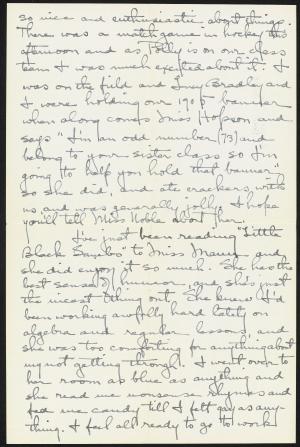 so nice and enthusiastic about things.
There was a match game in hockey this
afternoon and as Polly is on our class
team I was much excited about it. I
was on the field and Lucy Bradley and
I were holding our 1905 banner
when along comes Miss Hopson and
says "I'm an odd number (73) and
belong to your sister class so I'm
going to help you hold that banner"
so she did, and ate crackers with
us and was generally jolly. I hope
you'll tell Miss Noble about her.
I've just been reading "Little
Black Sambo" to Miss and
she did enjoy it so much. She has the
best sense of humor and she's just
the nicest thing out. She knew I'd
been working awfully hard lately on
algebra and regular lessons and
she was too comforting for anything about
my not getting through. I went over to
her room as blue as anything and
she read me nonsense rhymes and
fed me candy till I felt gay as any-
thing. I feel all ready to go to work